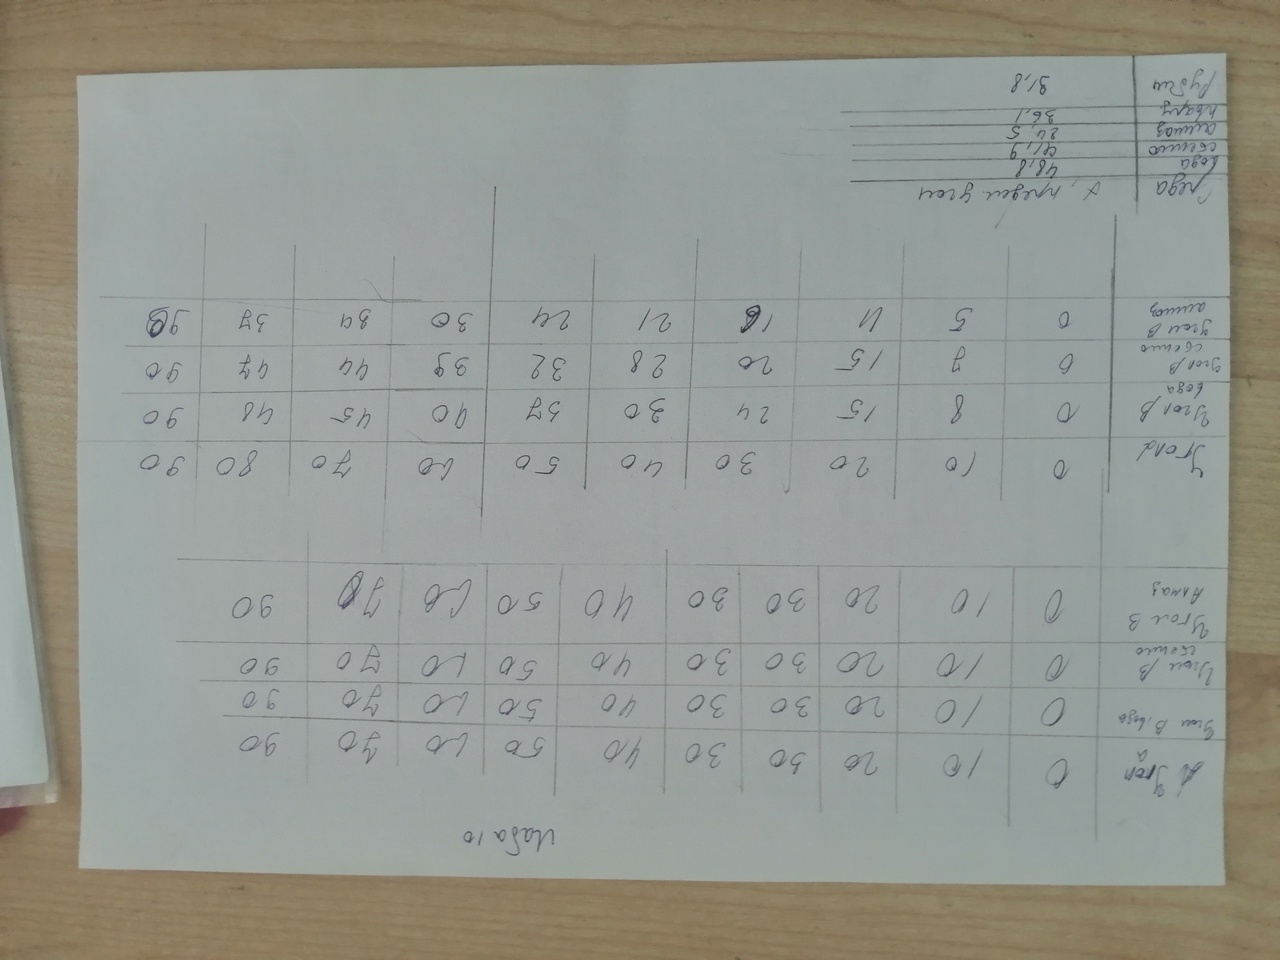 Лаба 10
Угол а 0 10 20 30 30 40 50 60 70 90
Угол В, вода 0 10 20 30 30 40 50 60 70 90
Угол β стекло 0 10 20 30 30 40 50 60 70 90
Угол В Алмаз 0 10 20 30 30 40 50 60 70 90
Угол α 0 10 20 30 40 50 60 70 80 90
Угол β вода 0 8 15 24 30 37 40 45 48 90
Угол β стекло 0 7 15 20 28 32 39 44 47 90
Угол В алмаз 0 5 11 16 21 24 30 34 37 90
Среда α, предел. угол
вода 48,8
стекло 41,9
алмаз 24,5
кварц 36,1
Рубин 31,8